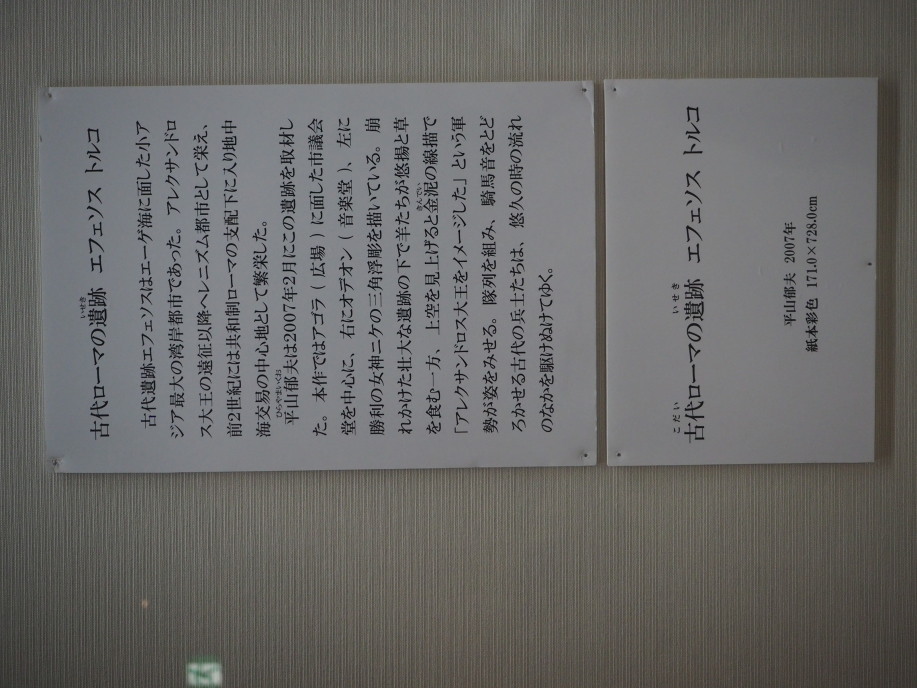 古代ローマの遺跡 エフェソス トルコ
古代遺跡エフェソスはエーゲ海に面した小ア
ジア最大の湾岸都市であった。アレクサンドロ
ス大王の遠征以降ヘレニズム都市として栄え、
前2世紀には共和制ローマの支配下に入り地中
海交易の中心地として繁栄した。
平山郁夫は2007年2月にこの遺跡を取材し
た。本作ではアゴラ(広場)に面した市議会
堂を中心に、右にオデオン(音楽堂)、左に
勝利の女神ニケの三角浮彫を描いている。崩
れかけた壮大な遺跡の下で羊たちが悠揚と草
を食む一方、上空を見上げると金泥の線描で
「アレクサンドロス大王をイメージした」という軍
勢が姿をみせる。隊列を組み、騎馬音をとど
ろかせる古代の兵士たちは、悠久の時の流れ
のなかを駆けぬけてゆく。
古代ローマの遺跡 エフェソス トルコ
平山郁夫 2007年
紙本彩色 171.0×728.0cm